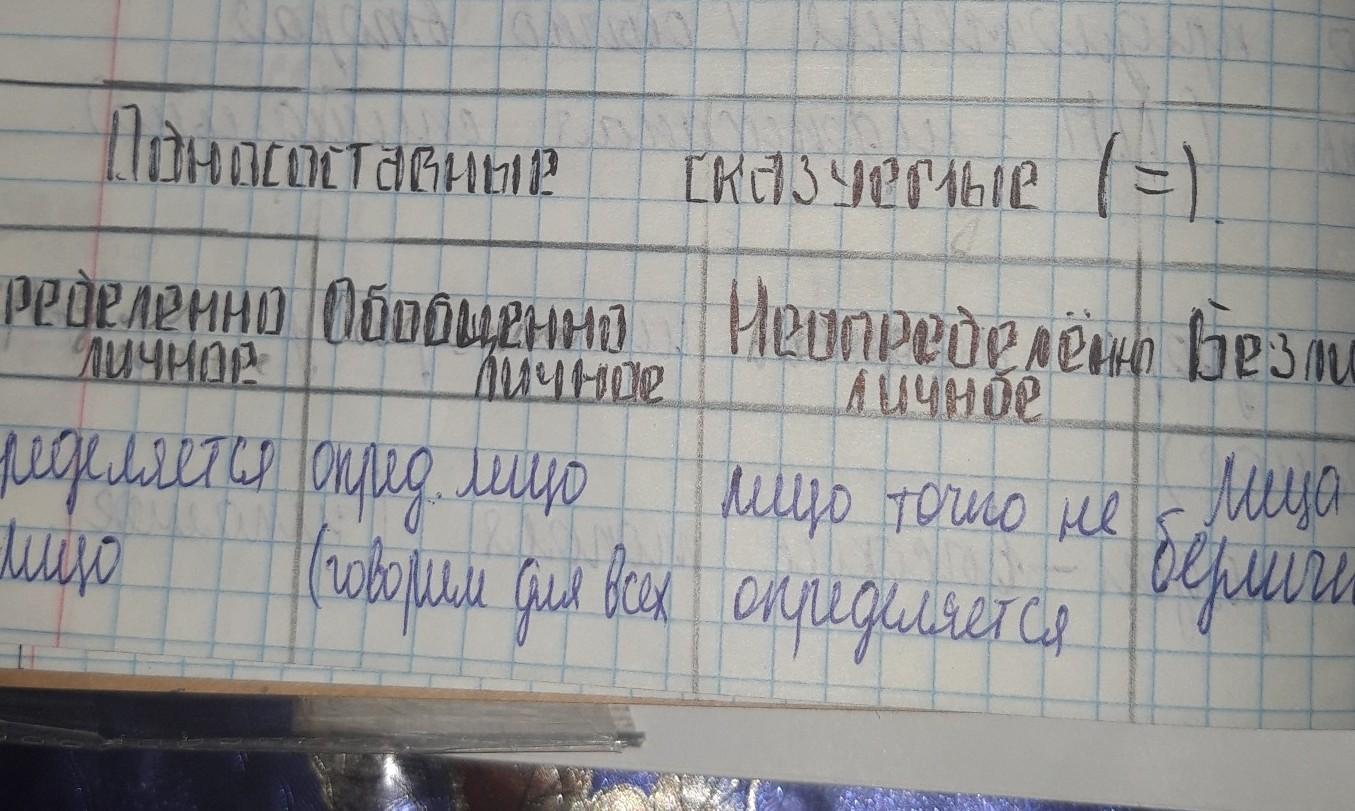 Подносоставные сказуемые (=).
ределенно
личное
Обобщенно
личное
Неопределённо
личное
Безли
ределяется
лицо
опред. лицо
(говорим для всех
лицо точно не
определяется
лица